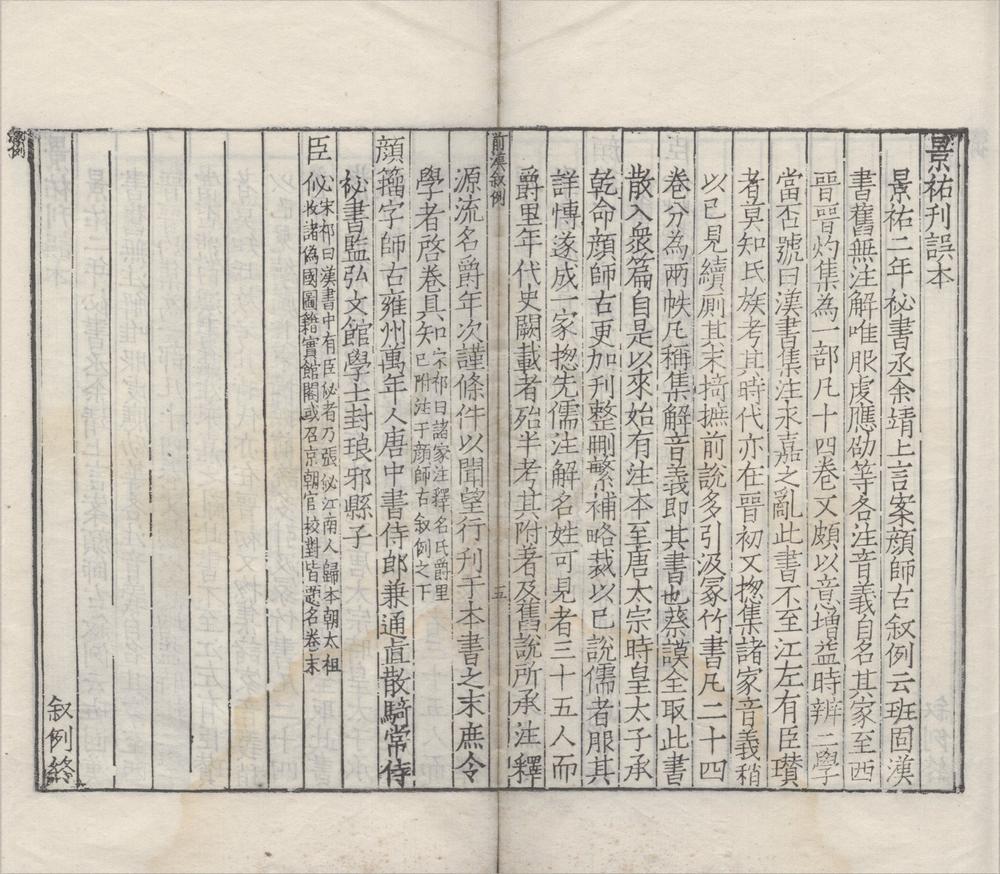 景祐刊誤本
景祐二年秘書丞余靖上言案顏師古叙例云班固漢
書舊無注解唯服虔應劭等各注音義自名其家至西
晉晉灼集為一部凡十四卷又頗以意增益時辨二學
當否號曰漢書集注永嘉之亂此書不至江左有臣瓚
者莫知氏族考其時代亦在晉初又揔集諸家音義稍
以已見續厠其末掎摭前說多引汲冢竹書凡二十四
卷分為兩帙凡稱集解音義即其書也蔡謨全取此書
散入衆篇自是以來始有注本至唐太宗時皇太子承
乾命顏師古更加刊整刪繁補略裁以已說儒者服其
詳愽遂成一家揔先儒注解名姓可見者三十五人而
爵里年代史闕載者殆半考其附著及舊說所承注釋
前漢叙例
五
源流名爵年次謹條件以聞望行刊于本書之末庶令
學者啓卷具知宋祁曰諸家注釋名氏爵里
已附注于顏師古叙例之下
顏籀字師古雍州萬年人唐中書侍郎兼通直散騎常侍
秘書監弘文館學士封琅邪縣子
臣佖宋祁曰漢書中有臣佖者乃張佖江南人歸本朝太祖
收諸偽國圖籍實館閣或召京朝官校對皆題名卷末
叙例終
叙例